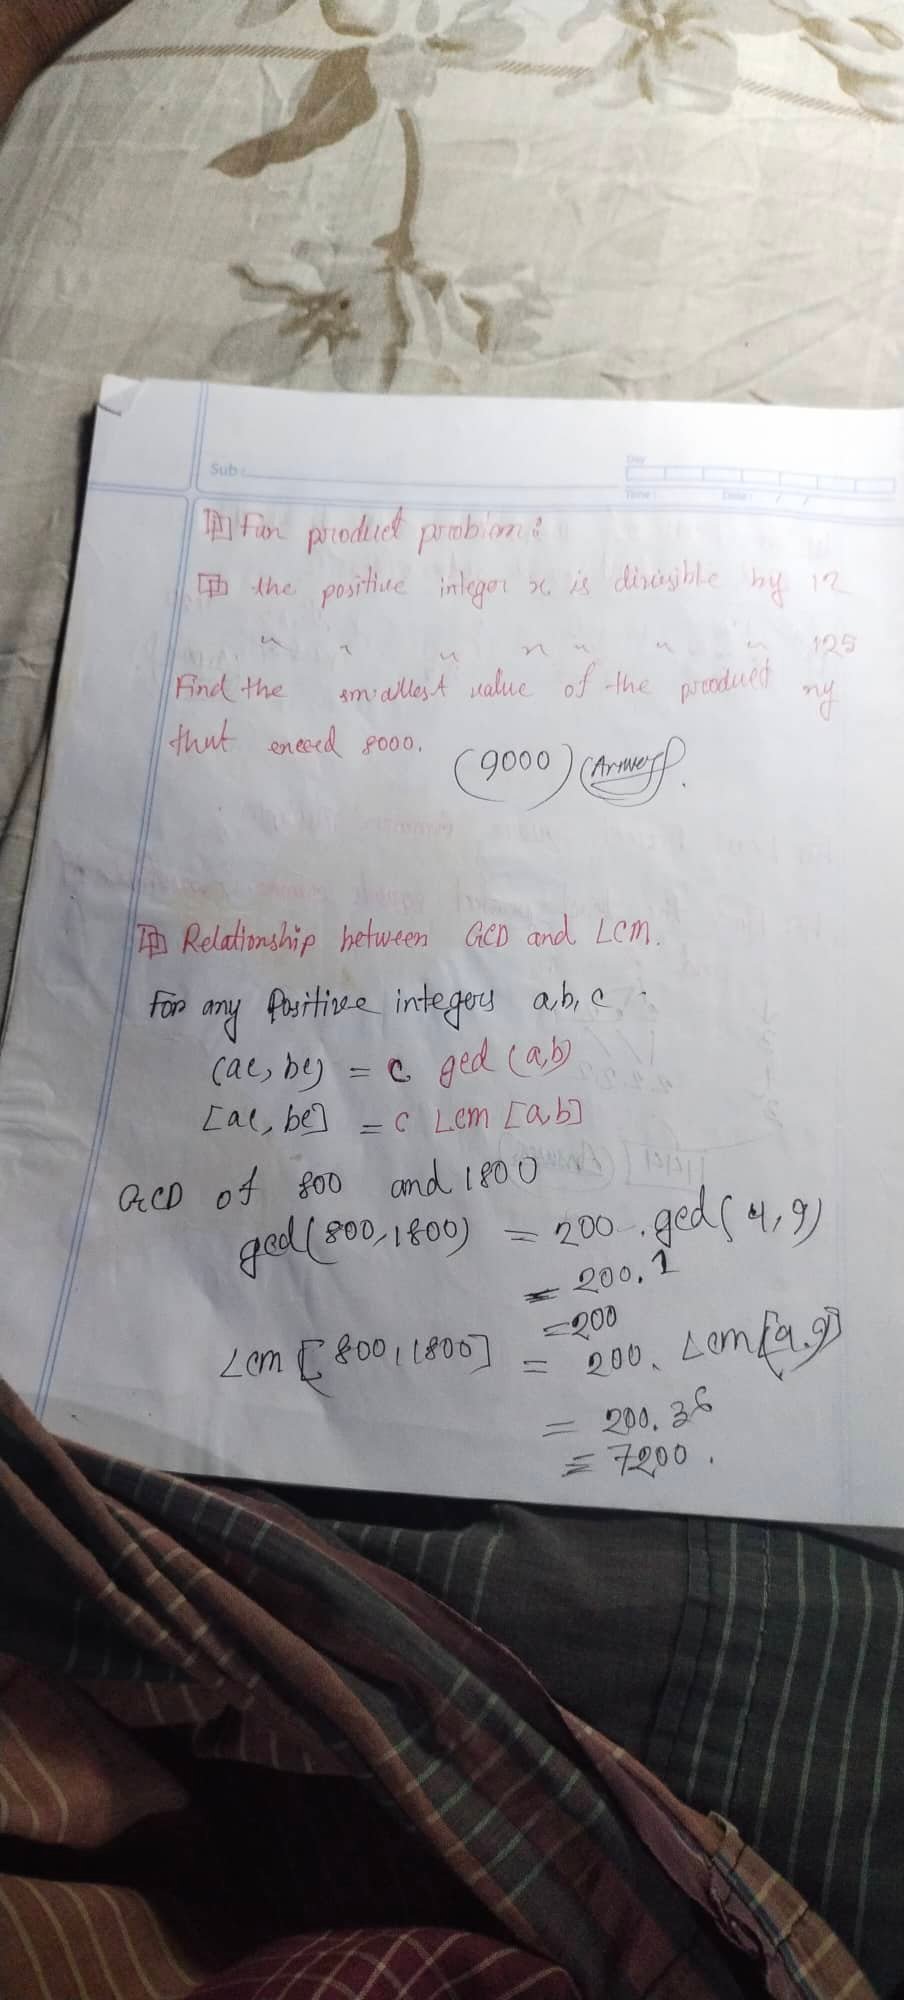 Sub:
Day
Time: Date: / /
Fun product problem:
the positive integer x is divisible by 12
" " " n " " " 125
Find the smallest value of the product ny
that exceed 8000.
(9000) (Answer).
Relationship between GCD and Lcm.
For any Positive integers a,b,c
(ac, bc) = c ged (a,b)
[ac, bc] = c Lcm [a,b]
GCD of 800 and 1800
ged(800,1800) = 200 . ged(4,9)
= 200.1
=200
Lcm [800,1800] = 200. Lcm[a,9]
= 200.36
= 7200.